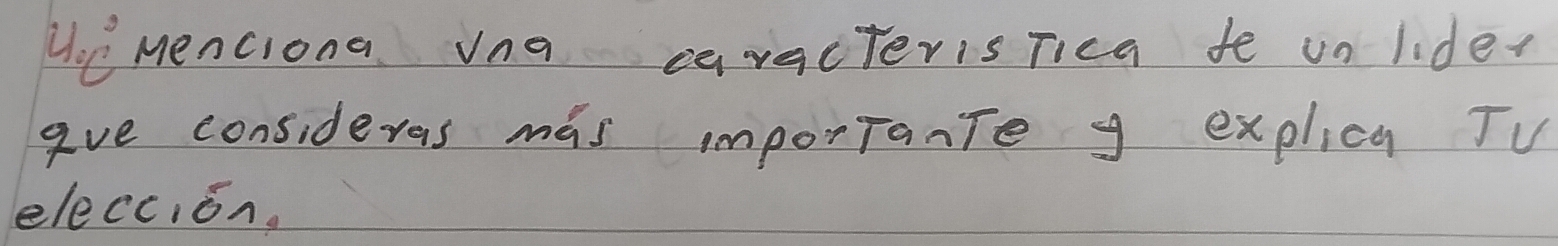 4.¿Menciona una característica de un lider
que consideras más importante y explica tu
elección.